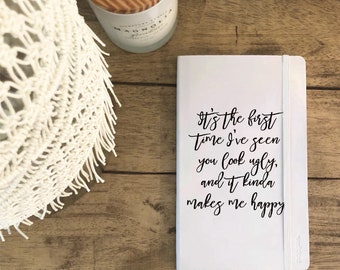 MAGNOLIA
It's the first
time I've seen
you look ugly,
and it kinda
makes me happy